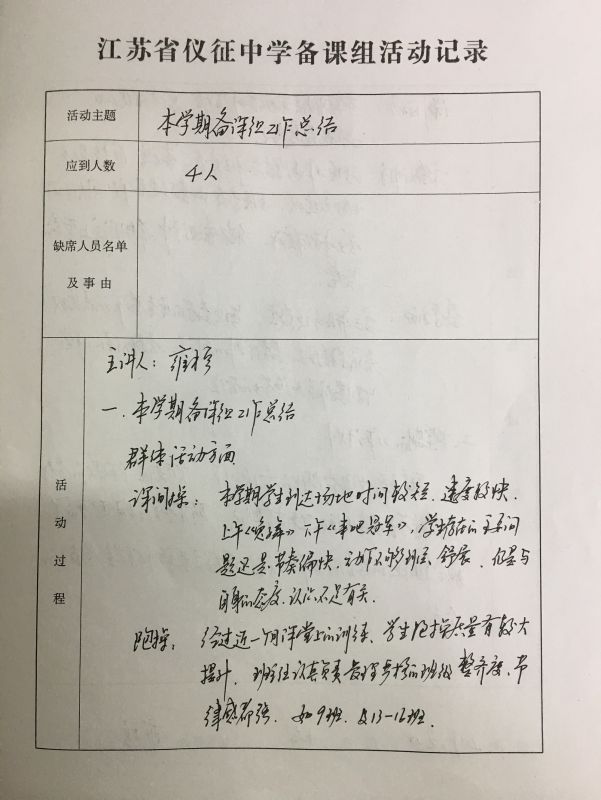 江苏省仪征中学备课组活动记录
活动主题
本学期备课组工作总结
应到人数
4人
缺席人员名单
及事由
活动过程
主讲人:
一.本学期备课组工作总结
群体活动方面
课间操: 本学期学生到达场地时间较短、速度较快.
上午《》下午《来吧冠军》,学生存在的主要问
题还是节奏偏快,动作不够到位、舒展. 但是与
自身的态度、认识不足有关.
跑操: 经过近一个月课堂上的训练、学生跑操质量有较大
提升、班主任认真负责的班级整齐度、节
律感都强. 如9班. 及13-16班.